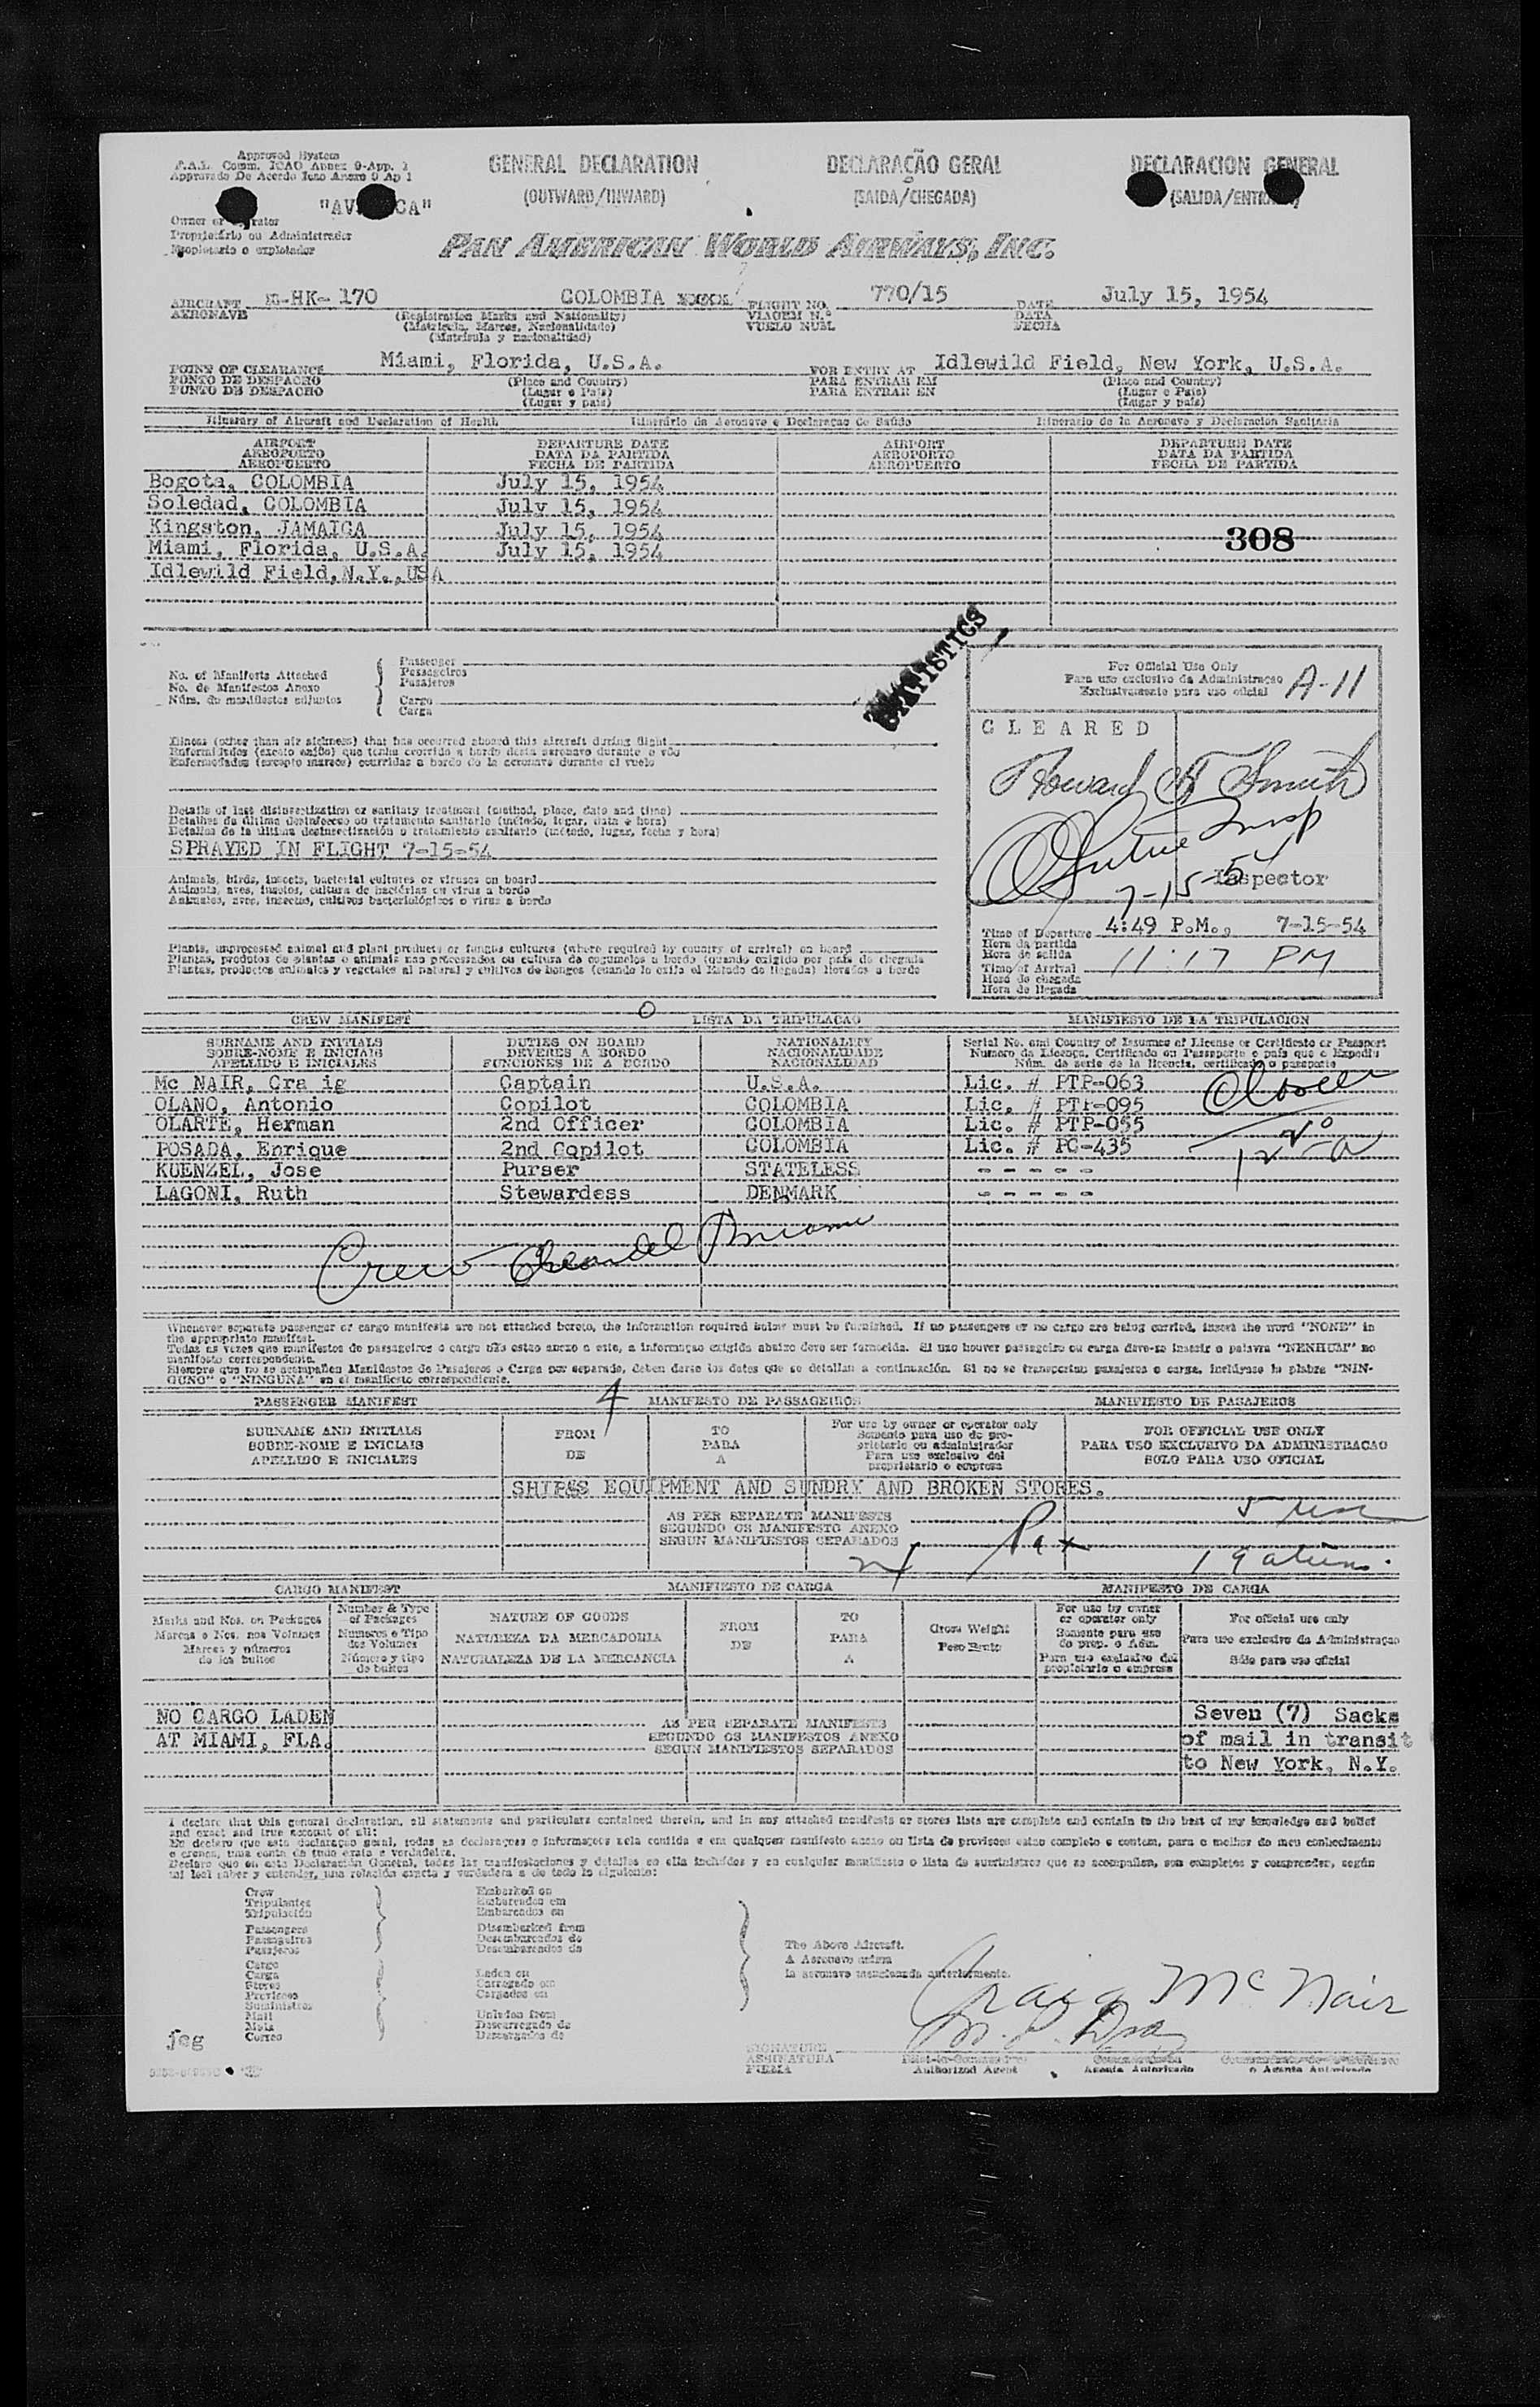 Approved System
F.A.L. Comm. ICAO Annex 9-App. 1
Approvado De Acordo Icao Anexo 9 Ap 1
GENERAL DECLARATION
(OUTWARD/INWARD)
DECLARAÇÃO GERAL
(SAIDA/CHEGADA)
DECLARACION GENERAL
(SALIDA/ENTRADA)
"AVIANCA"
Owner or Operator
Proprietário ou Administrador
Propietario o explotador
PAN AMERICAN WORLD AIRWAYS, INC.
AIRCRAFT HK-170 COLOMBIA FLIGHT NO. 770/15 DATE July 15, 1954
AERONAVE (Registration Marks and Nationality) VIAGEM N.º DATA
(Matricula, Marcas, Nacionalidade) VUELO NUM. FECHA
(Matricula y nacionalidad)
POINT OF CLEARANCE Miami, Florida, U.S.A. FOR ENTRY AT Idlewild Field, New York, U.S.A.
PONTO DE DESPACHO (Place and Country) PARA ENTRAR EM (Place and Country)
PUNTO DE DESPACHO (Lugar e País) PARA ENTRAR EN (Lugar e País)
(Lugar y país) (Lugar y país)
Itinerary of Aircraft and Declaration of Health Itinerário da Aeronave e Declaraçao de Saúde Itinerario de la Aeronave y Declaracion Sanitaria
AIRPORT DEPARTURE DATE AIRPORT DEPARTURE DATE
AEROPORTO DATA DA PARTIDA AEROPORTO DATA DA PARTIDA
AEROPUERTO FECHA DE PARTIDA AEROPUERTO FECHA DE PARTIDA
Bogota, COLOMBIA July 15, 1954
Soledad, COLOMBIA July 15, 1954
Kingston, JAMAICA July 15, 1954
Miami, Florida, U.S.A. July 15, 1954
308
Idlewild Field, N.Y., USA
STATISTICS
No. of Manifests Attached
No. de Manifestos Anexo
Núm. de manifiestos adjuntos
Passenger
Passageiros
Pasajeros
Cargo
Carga
For Official Use Only
Para uso exclusivo da Administraçao
Exclusivamente para uso oficial
A-11
CLEARED
Howard Smith
7-15-54
Inspector
Illness (other than air sickness) that has occurred aboard this aircraft during flight
Enfermidades (exceto enjôo) que tenha ocorrido a bordo desta aeronave durante o vôo
Enfermedades (excepto mareos) ocurridas a bordo de la aeronave durante el vuelo
Details of last disinsectization or sanitary treatment (method, place, date and time)
Detalhes da última desinfeccao ou tratamento sanitario (método, lugar, data e hora)
Detalles de la última desinsectización o tratamiento sanitario (método, lugar, fecha y hora)
SPRAYED IN FLIGHT 7-15-54
Animals, birds, insects, bacterial cultures or viruses on board
Animais, aves, insetos, cultura de bactérias ou virus a bordo
Animales, aves, insectos, cultivos bacteriológicos o virus a bordo
Time of Departure 4:49 P.M., 7-15-54
Hora da partida
Hora de salida
Time of Arrival 11:17 PM
Hora de chegada
Hora de llegada
Plants, unprocessed animal and plant products or fungus cultures (where required by country of arrival) on board
Plantas, produtos de plantas o animais nao processados ou cultura de cogumelos a bordo (quando exigido por país de chegada
Plantas, productos animales y vegetales al natural y cultivos de hongos (cuando lo exija el Estado de llegada) llevados a bordo
CREW MANIFEST LISTA DA TRIPULACAO MANIFIESTO DE LA TRIPULACION
SURNAME AND INITIALS DUTIES ON BOARD NATIONALITY Serial No. and Country of Issuance of License or Certificate or Passport
SOBRE-NOME E INICIAIS DEVERES A BORDO NACIONALIDADE Numero da Licença, Certificado ou Passaporte e país que o Expediu
APELLIDO E INICIALES FUNCIONES DE A BORDO NACIONALIDAD Núm. de serie de la licencia, certificado o pasaporte
Mc NAIR, Cra ig Captain U.S.A. Lic. # PTP-063
OLANO, Antonio Copilot COLOMBIA Lic. # PTP-095
OLARTE, Herman 2nd Officer COLOMBIA Lic. # PTP-055
POSADA, Enrique 2nd Copilot COLOMBIA Lic. # PC-435
KUENZEL, Jose Purser STATELESS - - - - -
LAGONI, Ruth Stewardess DENMARK - - - - -
Crew Cleared Miami
Whenever separate passenger or cargo manifests are not attached hereto, the information required below must be furnished. If no passengers or no cargo are being carried, insert the word "NONE" in
the appropriate manifest.
Todas as vezes que manifestos de passageiros o cargo não estao anexo a este, a informaçao exigida abaixo deve ser fornecida. Si nao houver passageiro ou carga deve-se inserir a palavra "NENHUM" no
manifesto correspondente.
Siempre que no se acompañen Manifiestos de Pasajeros o Carga por separado, deben darse los datos que se detallan a continuación. Si no se transportan pasajeros o carga, inclúyase la plabra "NIN-
GUNO" o "NINGUNA" en el manifiesto correspondiente.
4
PASSENGER MANIFEST MANIFESTO DE PASSAGEIROS MANIFIESTO DE PASAJEROS
SURNAME AND INITIALS FROM TO For use by owner or operator only FOR OFFICIAL USE ONLY
SOBRE-NOME E INICIAIS DE PARA Somente para uso do proprietario ou administrador PARA USO EXCLUSIVO DA ADMINISTRACAO
APELLIDO E INICIALES A Para uso exclusivo del propietario o empresa SOLO PARA USO OFICIAL
SHIPS EQUIPMENT AND SUNDRY AND BROKEN STORES.
AS PER SEPARATE MANIFESTS
SEGUNDO OS MANIFESTO ANEXO
SEGUN MANIFIESTOS SEPARADOS
Pax
CARGO MANIFEST MANIFIESTO DE CARGA MANIFESTO DE CARGA
Marks and Nos. on Packages Number & Type of Packages NATURE OF GOODS FROM TO Gross Weight For use by owner or operator only For official use only
Marcas e Nos. nos Volumes Numeros e Tipo dos Volumes NATUREZA DA MERCADORIA DE PARA Peso Bruto Somente para uso do prop. o Adm. Para uso exclusivo da Administraçao
Marcas y números de los bultos Número y tipo de bultos NATURALEZA DE LA MERCANCIA A Para uso exclusivo del propietario o empresa Sólo para uso oficial
NO CARGO LADEN
AT MIAMI, FLA.
AS PER SEPARATE MANIFESTS
SEGUNDO OS MANIFESTOS ANEXO
SEGUN MANIFIESTOS SEPARADOS
Seven (7) Sacks
of mail in transit
to New York, N.Y.
I declare that this general declaration, all statements and particulars contained therein, and in any attached manifests or stores lists are complete and contain to the best of my knowledge and belief
and exact and true account of all:
Eu declaro que esta declaraçao geral, todas as declaraçoes e informaçoes nela contida e em qualquer manifesto anexo ou lista de provisoes estao completo e contem, para o melhor do meu conhecimento
e crença, uma conta de tudo exata e verdadeira.
Declaro que en esta Declaración General, todas las manifestaciones y detalles en ella incluídos y en cualquier manifiesto o lista de suministros que se acompañen, son completos y comprender, según
mi leal saber y entender, una relación exacta y verdadera a de todo lo siguiente:
Crew
Tripulantes
Tripulación
Passengers
Passageiros
Pasajeros
Cargo
Carga
Stores
Provisoes
Suministros
Mail
Mala
Correo
Embarked on
Embarcados em
Embarcados en
Disembarked from
Desembarcados de
Desembarcados de
Laden on
Carregado em
Cargados en
Unladen from
Descarregado de
Descargados de
The Above Aircraft.
A Aeronave acima
la aeronave mencionada anteriormente.
Craig McNair
jeg
SIGNATURE
ASSINATURA
FIRMA
Authorized Agent
Agente Autorizado
o Agente Autorizado